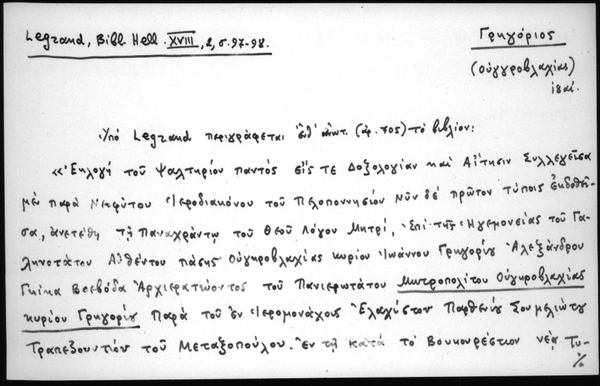 Legrand, Bibl. Hell. XVIII, 2, σ. 97-98.
Γρηγόριος
(Οὐγγροβλαχίας)
Ὑπὸ Legrand περιγράφεται ἔνθ' ἀνωτ. (ἀρ. 705) τὸ βιβλίον:
«Ἐκλογὴ τοῦ Ψαλτηρίου παντὸς εἴς τε Δοξολογίαν καὶ Αἴτησιν Συλλεγεῖσα
μὲν παρὰ Νεοφύτου Ἱεροδιακόνου τοῦ Πελοποννησίου Νῦν δὲ πρῶτον τύποις ἐκδοθεῖ-
σα, ἀνετέθη τῇ Παναχράντῳ τοῦ Θεοῦ Λόγου Μητρί, Ἐπὶ τῆς Ἡγεμονείας τοῦ Γα-
ληνοτάτου Αὐθέντου πάσης Οὐγκροβλαχίας κυρίου Ἰωάννου Γρηγορίου Ἀλεξάνδρου
Γκίκα Βοεβόδα Ἀρχιερατεύοντος τοῦ Πανιερωτάτου Μητροπολίτου Οὐγκροβλαχίας
κυρίου Γρηγορίου Παρὰ τοῦ ἐν Ἱερομονάχοις Ἐλαχίστου Παρθενίου Σουμελιώτου
Τραπεζουντίου τοῦ Μεταξοπούλου. Ἐν τῇ κατὰ τὸ Βουκουρέστιον νέᾳ Τυ-